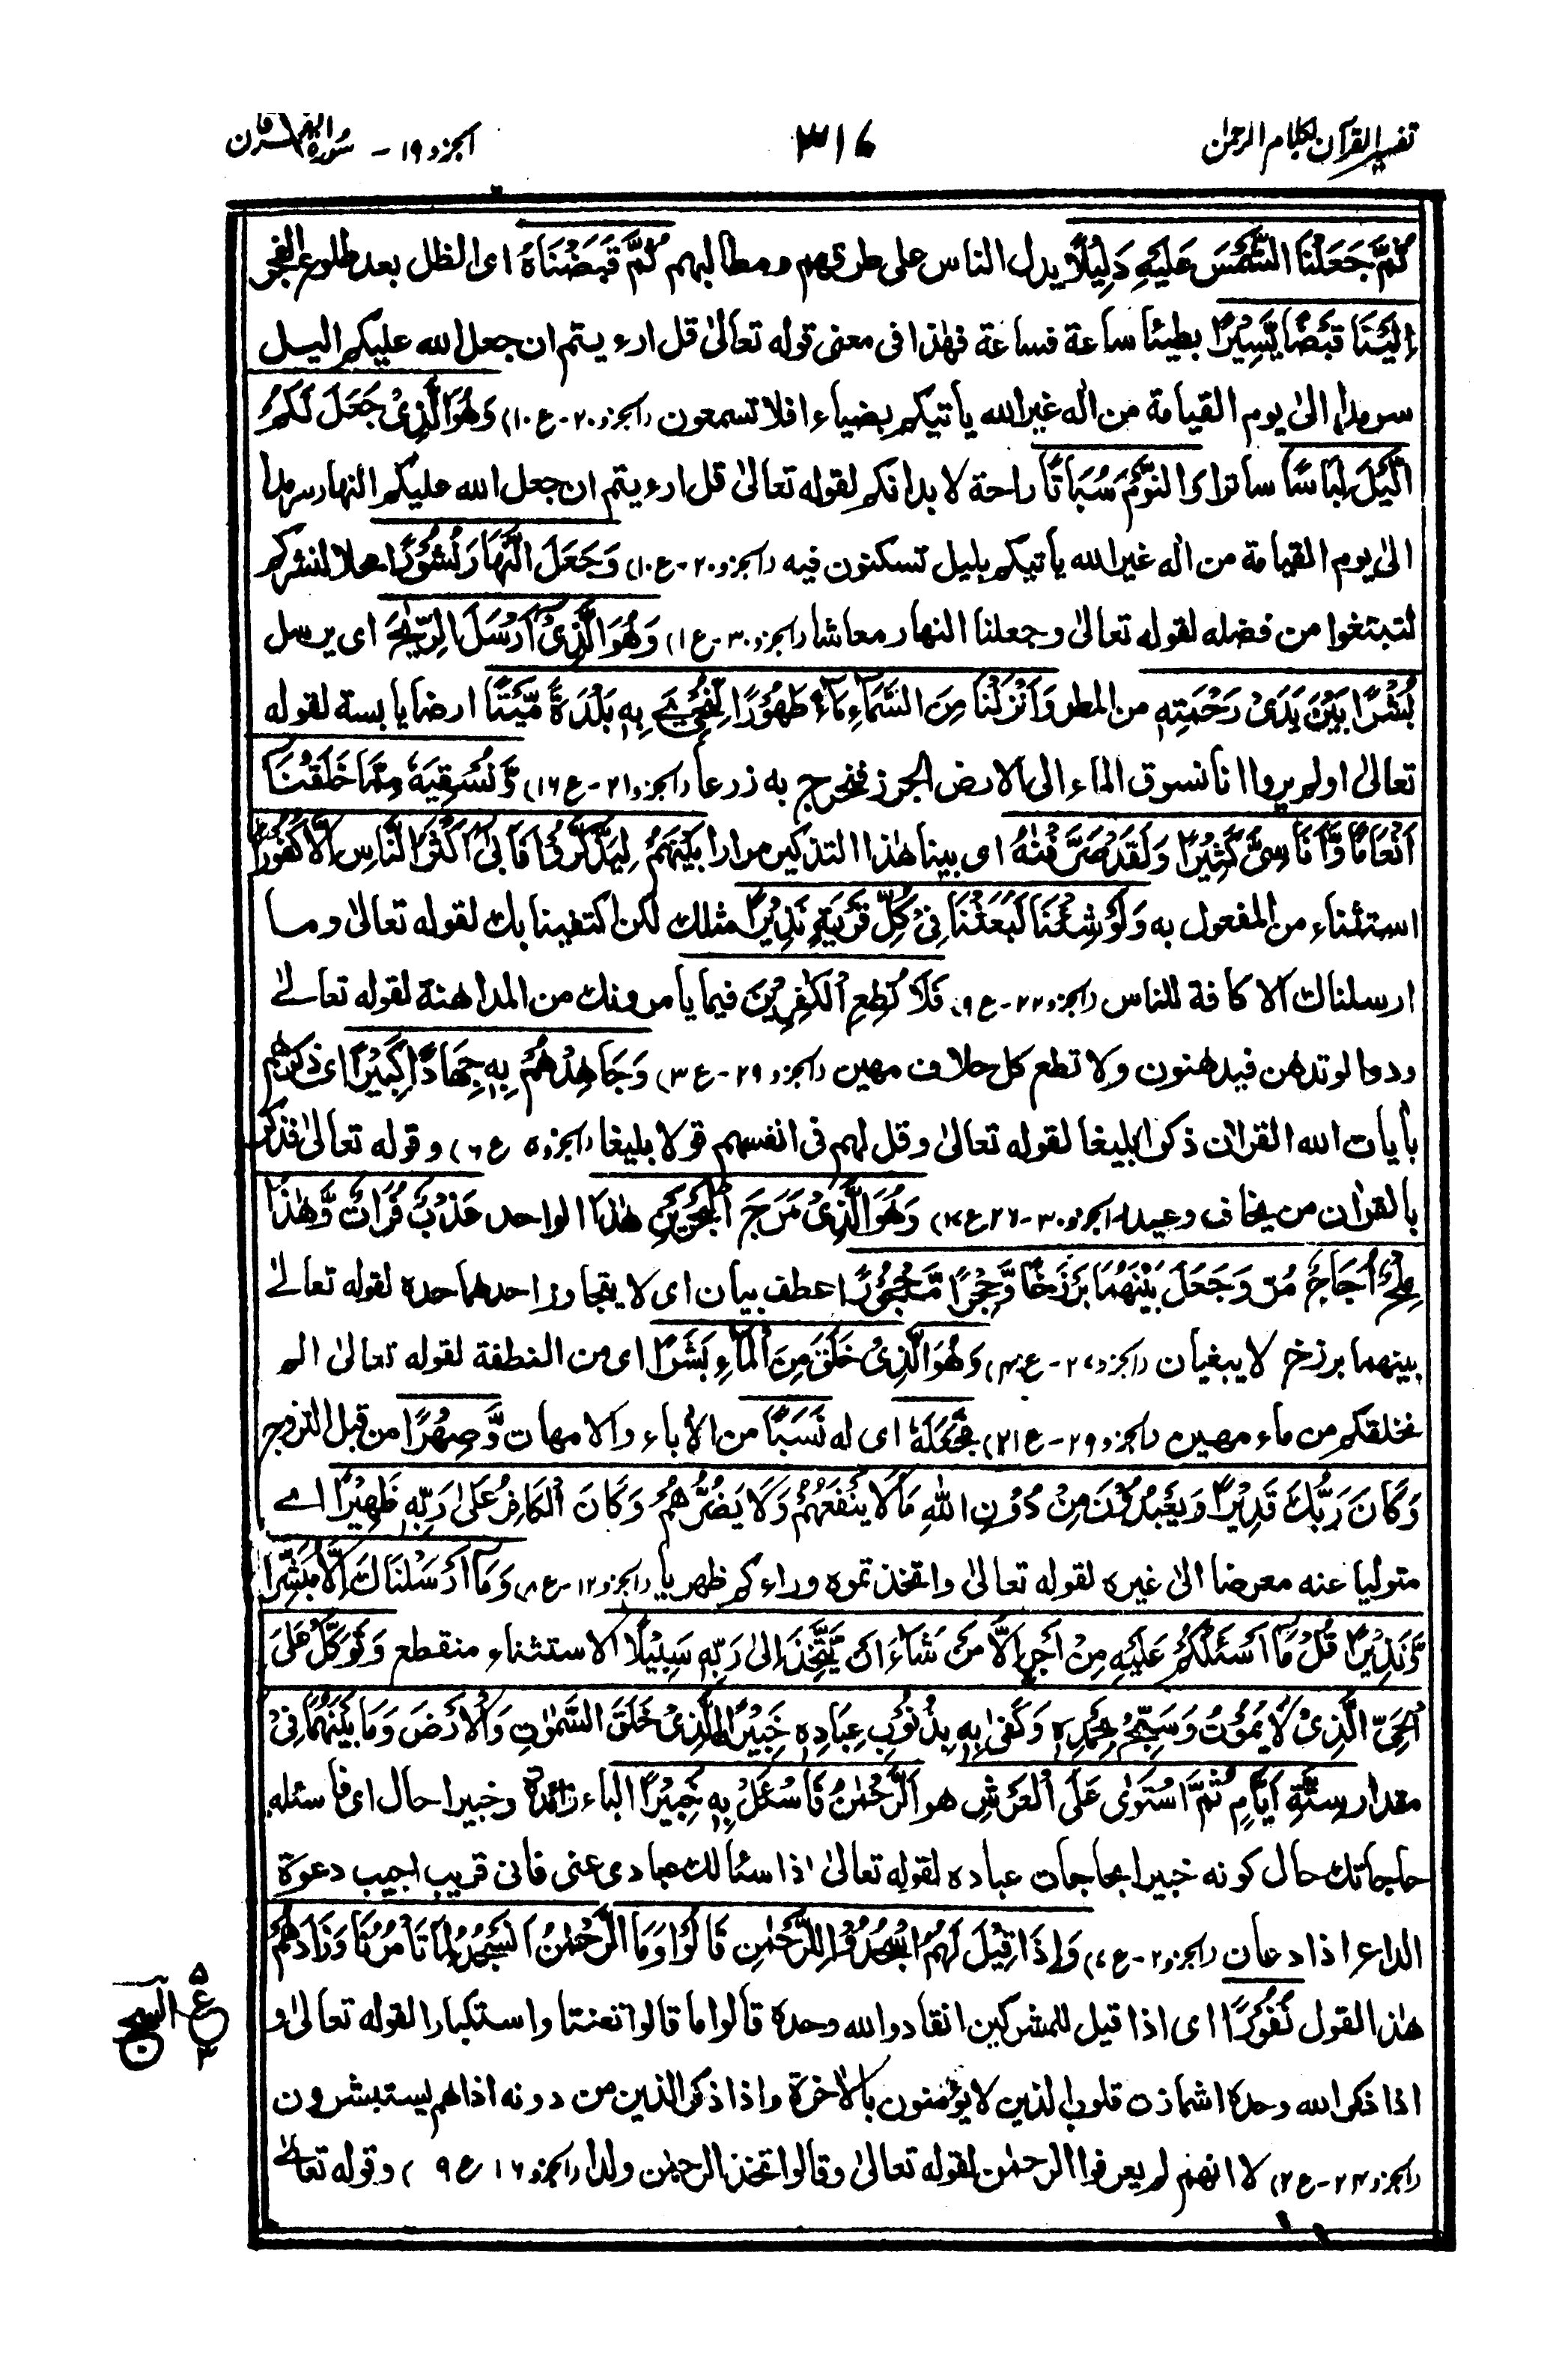 تفسير القرآن بكلام الرحمن ٣١٦ الجزو ١٩ - سورة الفرقان
ثُمَّ جَعَلْنَا الشَّمْسَ عَلَيْهِ دَلِيْلًا يدل الناس على طرقهم ومطالبهم ثُمَّ قَبَضْنَاهُ اى الظل بعد طلوع الفجر
اِلَيْنَا قَبْضًا يَّسِيْرًا بطيئا ساعة فساعة فهٰذا فى معنى قوله تعالىٰ قل ارءيتم ان جعل الله عليكم اليل
سرمدا الىٰ يوم القيامة من اله غير الله ياتيكم بضياء افلا تسمعون (الجزو ٢٠ - ع ١٠) وَهُوَ الَّذِىْ جَعَلَ لَكُمُ
الَّيْلَ لِبَاسًا ساترا وَالنَّوْمَ سُبَاتًا راحة لابدانكم لقوله تعالىٰ قل ارءيتم ان جعل الله عليكم النهار سرمدا
الىٰ يوم القيامة من اله غير الله ياتيكم بليل تسكنون فيه (الجزو ٢٠ - ع ١٠) وَجَعَلَ النَّهَارَ نُشُوْرًا محلا لنشركم
لتبتغوا من فضله لقوله تعالىٰ وجعلنا النهار معاشا (الجزو ٣٠ - ع ١) وَهُوَ الَّذِىْ اَرْسَلَ الرِّيٰحَ اى يرسل
بُشْرًا بَيْنَ يَدَىْ رَحْمَتِهٖ من المطر وَاَنْزَلْنَا مِنَ السَّمَاءِ مَاءً طَهُوْرًا لِّنُحْيِىَ بِهٖ بَلْدَةً مَّيْتًا ارضا يابسة لقوله
تعالىٰ اولم يروا انا نسوق الماء الى الارض الجرز فنخرج به زرعا (الجزو ٢١ - ع ١٦) وَّنُسْقِيَهٗ مِمَّا خَلَقْنَا
اَنْعَامًا وَّاَنَاسِىَّ كَثِيْرًا وَلَقَدْ صَرَّفْنٰهُ اى بينا هٰذا التذكير مرارا بَيْنَهُمْ لِيَذَّكَّرُوْا فَاَبٰى اَكْثَرُ النَّاسِ اِلَّا كُفُوْرًا
استثناء من المفعول به وَلَوْ شِئْنَا لَبَعَثْنَا فِىْ كُلِّ قَرْيَةٍ نَّذِيْرًا مثلك لكن اكتفينا بك لقوله تعالىٰ وما
ارسلناك الا كافة للناس (الجزو ٢٢ - ع ٩) فَلَا تُطِعِ الْكٰفِرِيْنَ فيما يامرونك من المداهنة لقوله تعالىٰ
ودوا لو تدهن فيدهنون ولا تطع كل حلاف مهين (الجزو ٢٩ - ع ٣) وَجَاهِدْهُمْ بِهٖ جِهَادًا كَبِيْرًا اى ذكرهم
بأيات الله القرآن ذكرا بليغا لقوله تعالىٰ وقل لهم فى انفسهم قولا بليغا (الجزو ٥ ع ٦) وقوله تعالىٰ فذكر
بالقرٰان من يخاف وعيد (الجزو ٢٦ - ع ١٧) وَهُوَ الَّذِىْ مَرَجَ الْبَحْرَيْنِ هٰذَا الواحد عَذْبٌ فُرَاتٌ وَّهٰذَا
مِلْحٌ اُجَاجٌ مر وَجَعَلَ بَيْنَهُمَا بَرْزَخًا وَّحِجْرًا مَّحْجُوْرًا عطف بيان اى لا يتجاوز احدهما حده لقوله تعالىٰ
بينهما برزخ لا يبغيان (الجزو ٢٧ - ع ) وَهُوَ الَّذِىْ خَلَقَ مِنَ الْمَاءِ بَشَرًا اى من النطفة لقوله تعالىٰ الم
نخلقكم من ماء مهين (الجزو ٢٩ - ع ٢١) فَجَعَلَهٗ اى له نَسَبًا من الأباء والامهات وَّصِهْرًا من قبل التزوج
وَكَانَ رَبُّكَ قَدِيْرًا وَيَعْبُدُوْنَ مِنْ دُوْنِ اللهِ مَا لَا يَنْفَعُهُمْ وَلَا يَضُرُّهُمْ وَكَانَ الْكَافِرُ عَلٰى رَبِّهٖ ظَهِيْرًا اے
متوليا عنه معرضا الىٰ غيره لقوله تعالىٰ واتخذتموه وراءكم ظهريا (الجزو ١٢ - ع ٨) وَمَا اَرْسَلْنَاكَ اِلَّا مُبَشِّرًا
وَّنَذِيْرًا قُلْ مَا اَسْئَلُكُمْ عَلَيْهِ مِنْ اَجْرٍ اِلَّا مَنْ شَاءَ اَنْ يَّتَّخِذَ اِلٰى رَبِّهٖ سَبِيْلًا الاستثناء منقطع وَتَوَكَّلْ عَلَى
الْحَىِّ الَّذِىْ لَا يَمُوْتُ وَسَبِّحْ بِحَمْدِهٖ وَكَفٰى بِهٖ بِذُنُوْبِ عِبَادِهٖ خَبِيْرًا الَّذِىْ خَلَقَ السَّمٰوٰتِ وَالْاَرْضَ وَمَا بَيْنَهُمَا فِىْ
مقدار سِتَّةِ اَيَّامٍ ثُمَّ اسْتَوٰى عَلَى الْعَرْشِ هو اَلرَّحْمٰنُ فَاسْئَلْ بِهٖ خَبِيْرًا الباء زائدة وخبيرا حال اى فاسئله
حاجاتك حال كونه خبيرا بحاجات عباده لقوله تعالىٰ اذا سئالك عبادى عنى فانى قريب اجيب دعوة
الداع اذا دعان (الجزو ٢ - ع ٧) وَاِذَا قِيْلَ لَهُمُ اسْجُدُوْا لِلرَّحْمٰنِ قَالُوْا وَمَا الرَّحْمٰنُ اَنَسْجُدُ لِمَا تَأْمُرُنَا وَزَادَهُمْ
هٰذا القول نُفُوْرًا اى اذا قيل للمشركين انقادوا لله وحده قالوا ما قالوا تعنتا واستكبارا لقوله تعالىٰ و
اذا ذكر الله وحده اشمازت قلوب الذين لا يؤمنون بالأخرة واذا ذكر الذين من دونه اذا هم يستبشرون
(الجزو ٢٤ - ع ٢) لا انهم لم يعرفوا الرحمٰن لقوله تعالىٰ وقالوا اتخذ الرحمٰن ولدا (الجزو ١٦ ع ٩) وقوله تعالىٰ